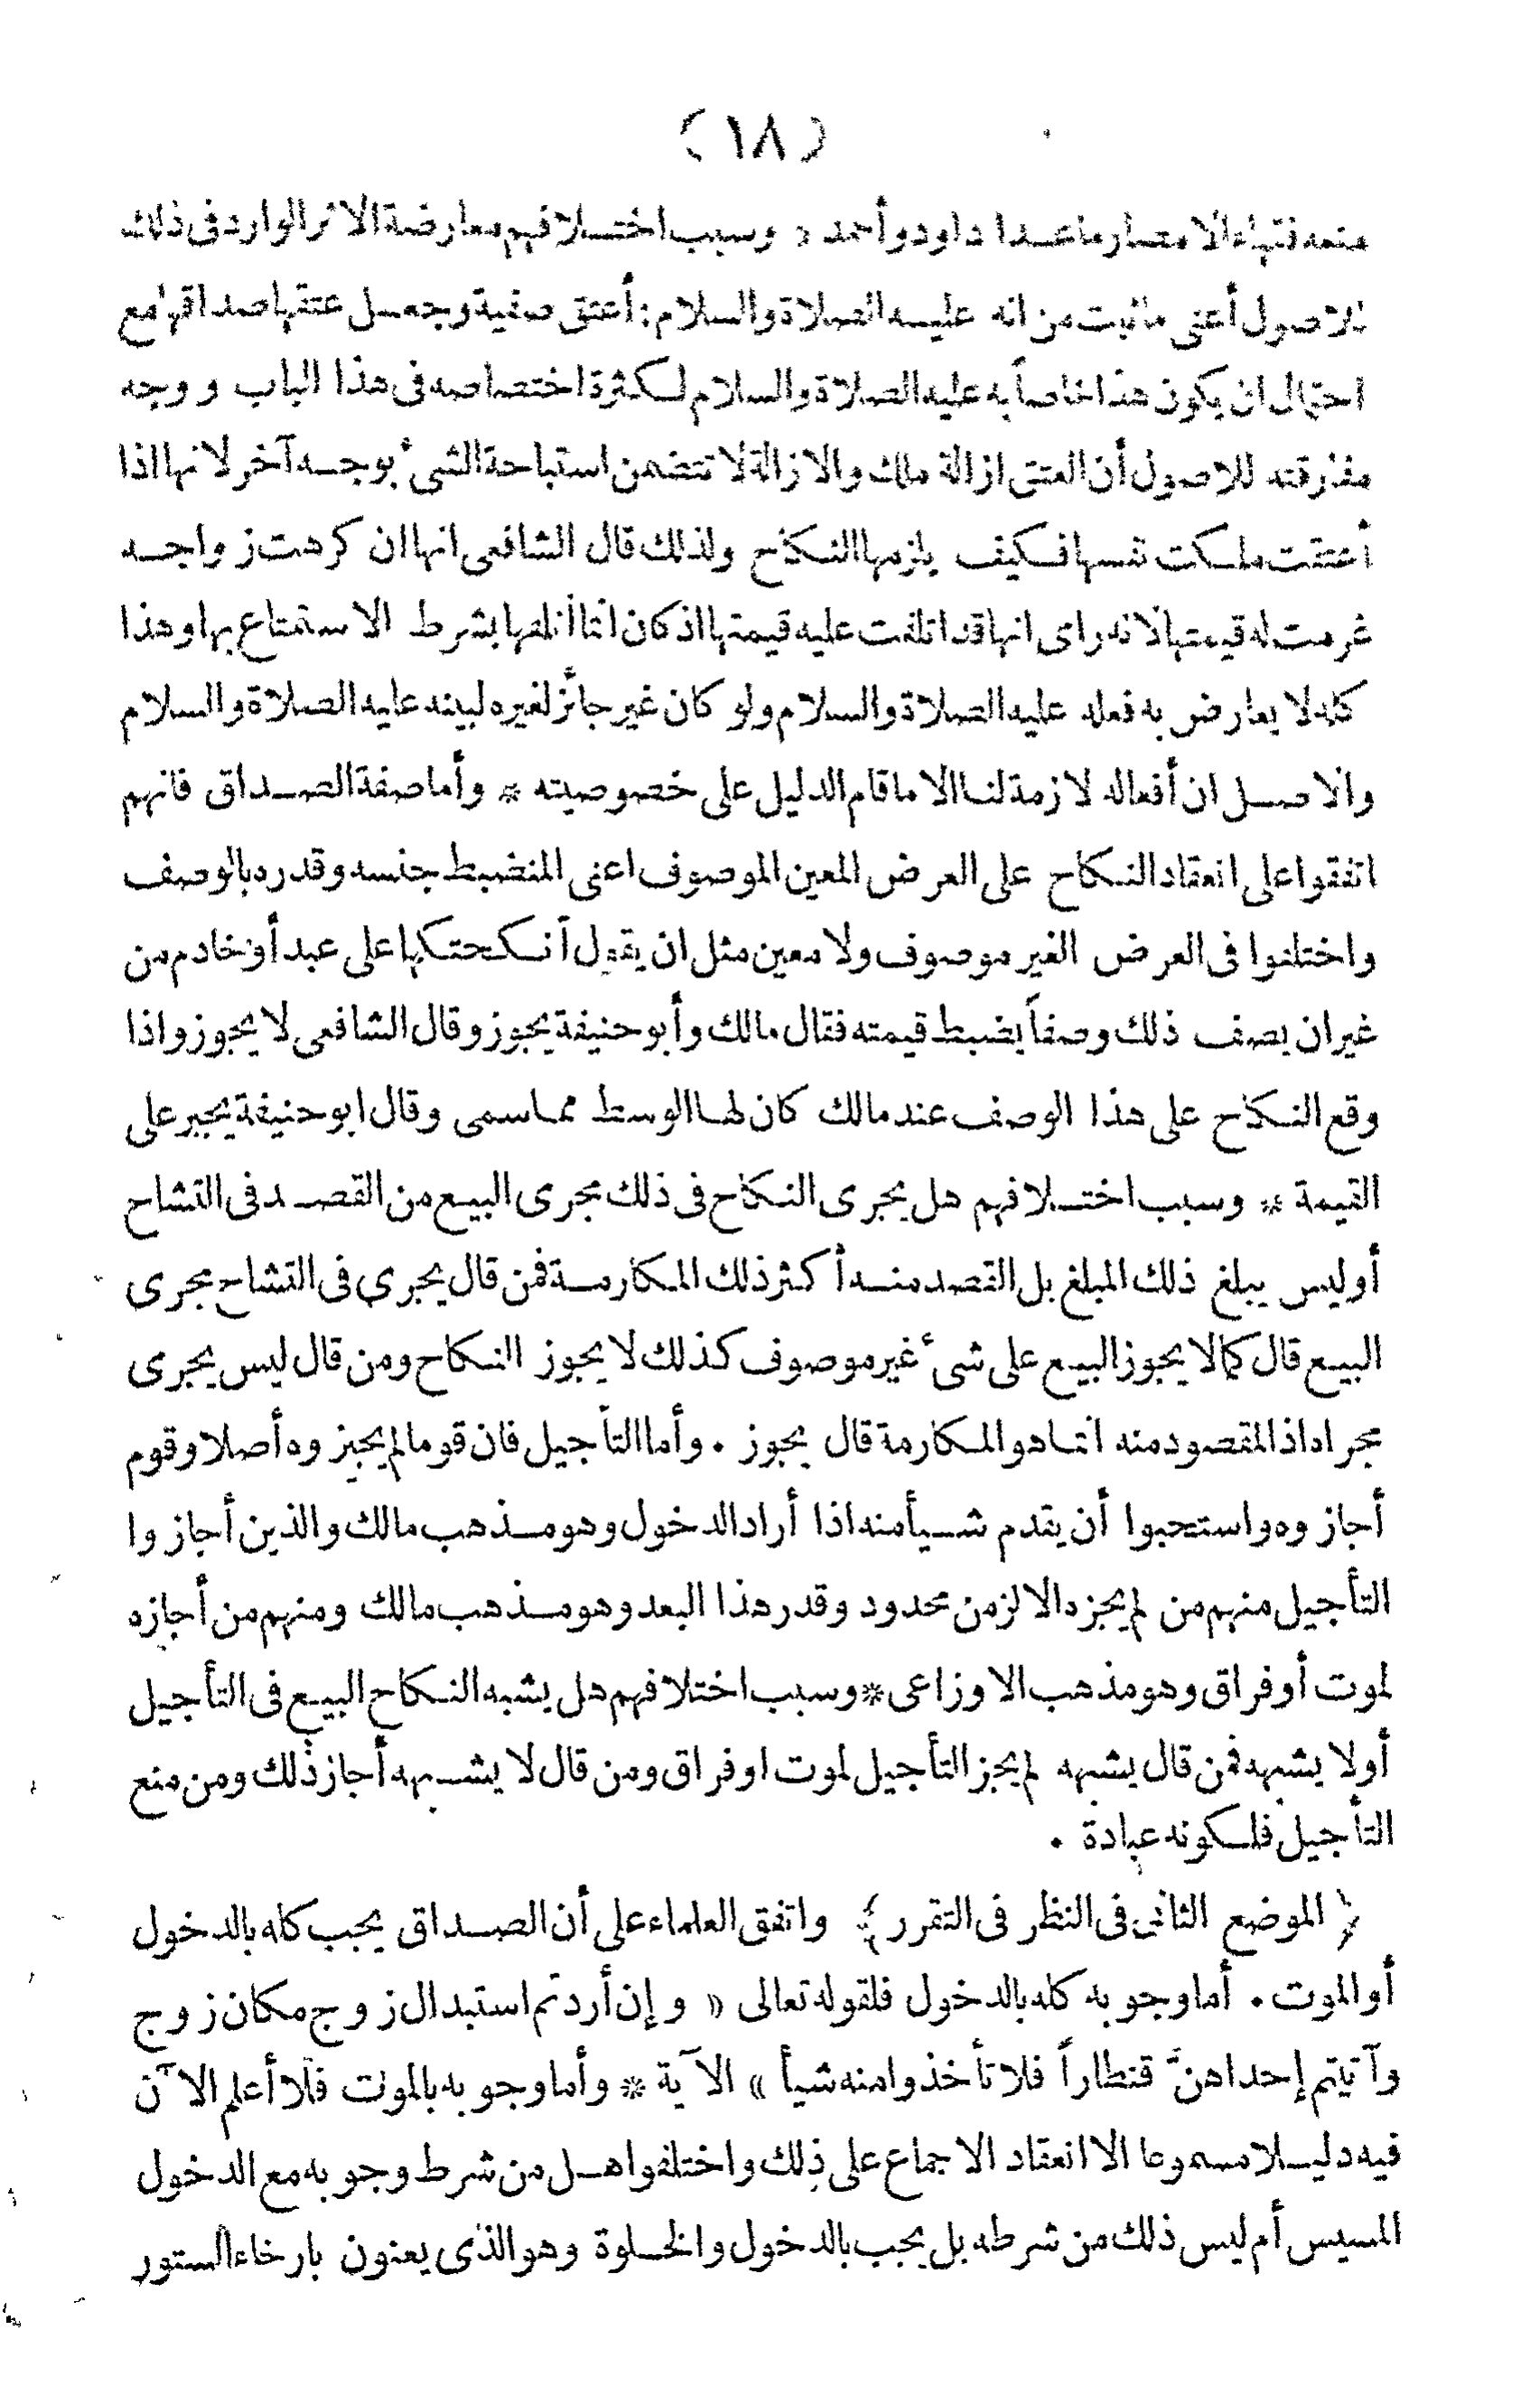 (١٨)
منعه فقهاء الامصار ماعدا داود وأحمد * وسبب اختلافهم معارضة الاثر الوارد فى ذلك
للاصول أعنى ماثبت من انه عليه الصلاة والسلام : أعتق صفية وجعل عتقها صداقها مع
احتمال ان يكون هذا خاصاً به عليه الصلاة والسلام لكثرة اختصاصه فى هذا الباب ووجه
مفارقته للاصول أن العتق ازالة ملك والازالة لا تتضمن استباحة الشىء بوجه آخر لانها اذا
أعتقت ملكت نفسها فكيف يلزمها النكاح ولذلك قال الشافعى انها ان كرهت زواجه
غرمت له قيمتها لانه راى انها قد اتلفت عليه قيمتها اذ كان انما أتلفها بشرط الاستمتاع بها وهذا
كله لا يعارض به فعله عليه الصلاة والسلام ولو كان غير جائز لغيره لبينه عليه الصلاة والسلام
والاصل ان أفعاله لازمة لنا الا ما قام الدليل على خصوصيته * وأما صفة الصداق فانهم
اتفقوا على انعقاد النكاح على العرض المعين الموصوف اعنى المنضبط جنسه وقدره بالوصف
واختلفوا فى العرض الغير موصوف ولا معين مثل ان يقول أنكحتكها على عبد أو خادم من
غير ان يصف ذلك وصفاً يضبط قيمته فقال مالك وأبو حنيفة يجوز وقال الشافعى لا يجوز واذا
وقع النكاح على هذا الوصف عند مالك كان لها الوسط مما سمى وقال ابو حنيفة يجبر على
القيمة * وسبب اختلافهم هل يجرى النكاح فى ذلك مجرى البيع من القصد فى التشاح
أو ليس يبلغ ذلك المبلغ بل القصد منه أكثر ذلك المكارمة فمن قال يجرى فى التشاح مجرى
البيع قال كما لا يجوز البيع على شىء غير موصوف كذلك لا يجوز النكاح ومن قال ليس يجرى
مجراه اذ المقصود منه انما هو المكارمة قال يجوز . وأما التأجيل فان قوما لم يجيزوه أصلا وقوم
أجازوه واستحبوا أن يقدم شيأ منه اذا أراد الدخول وهو مذهب مالك والذين أجازوا
التأجيل منهم من لم يجزه الا لزمن محدود وقدر هذا البعد وهو مذهب مالك ومنهم من أجازه
لموت أو فراق وهو مذهب الاوزاعى * وسبب اختلافهم هل يشبه النكاح البيع فى التأجيل
أولا يشبهه فمن قال يشبهه لم يجز التأجيل لموت او فراق ومن قال لا يشبهه أجاز ذلك ومن منع
التأجيل فلكونه عبادة .
﴿ الموضع الثانى فى النظر فى التقرر ﴾ واتفق العلماء على أن الصداق يجب كله بالدخول
أو الموت . أما وجوبه كله بالدخول فلقوله تعالى « وإن أردتم استبدال زوج مكان زوج
وآتيتم إحداهنَّ قنطاراً فلا تأخذوا منه شيأ » الآية * وأما وجوبه بالموت فلا أعلم الآن
فيه دليلا مسموعا الا انعقاد الاجماع على ذلك واختلفوا هل من شرط وجوبه مع الدخول
المسيس أم ليس ذلك من شرطه بل يجب بالدخول والخلوة وهو الذى يعنون بارخاء الستور